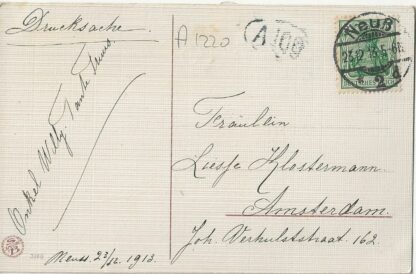 Drucksache
A 1220
A 108
NEUSS
23.12. 13. 5-6N
2 d
Onkel Willy, Tante Truus.
Fräulein
Liesje Klostermann.
Amsterdam.
Joh. Verhulststraat 162.
Neuss. 23/12. 1913.